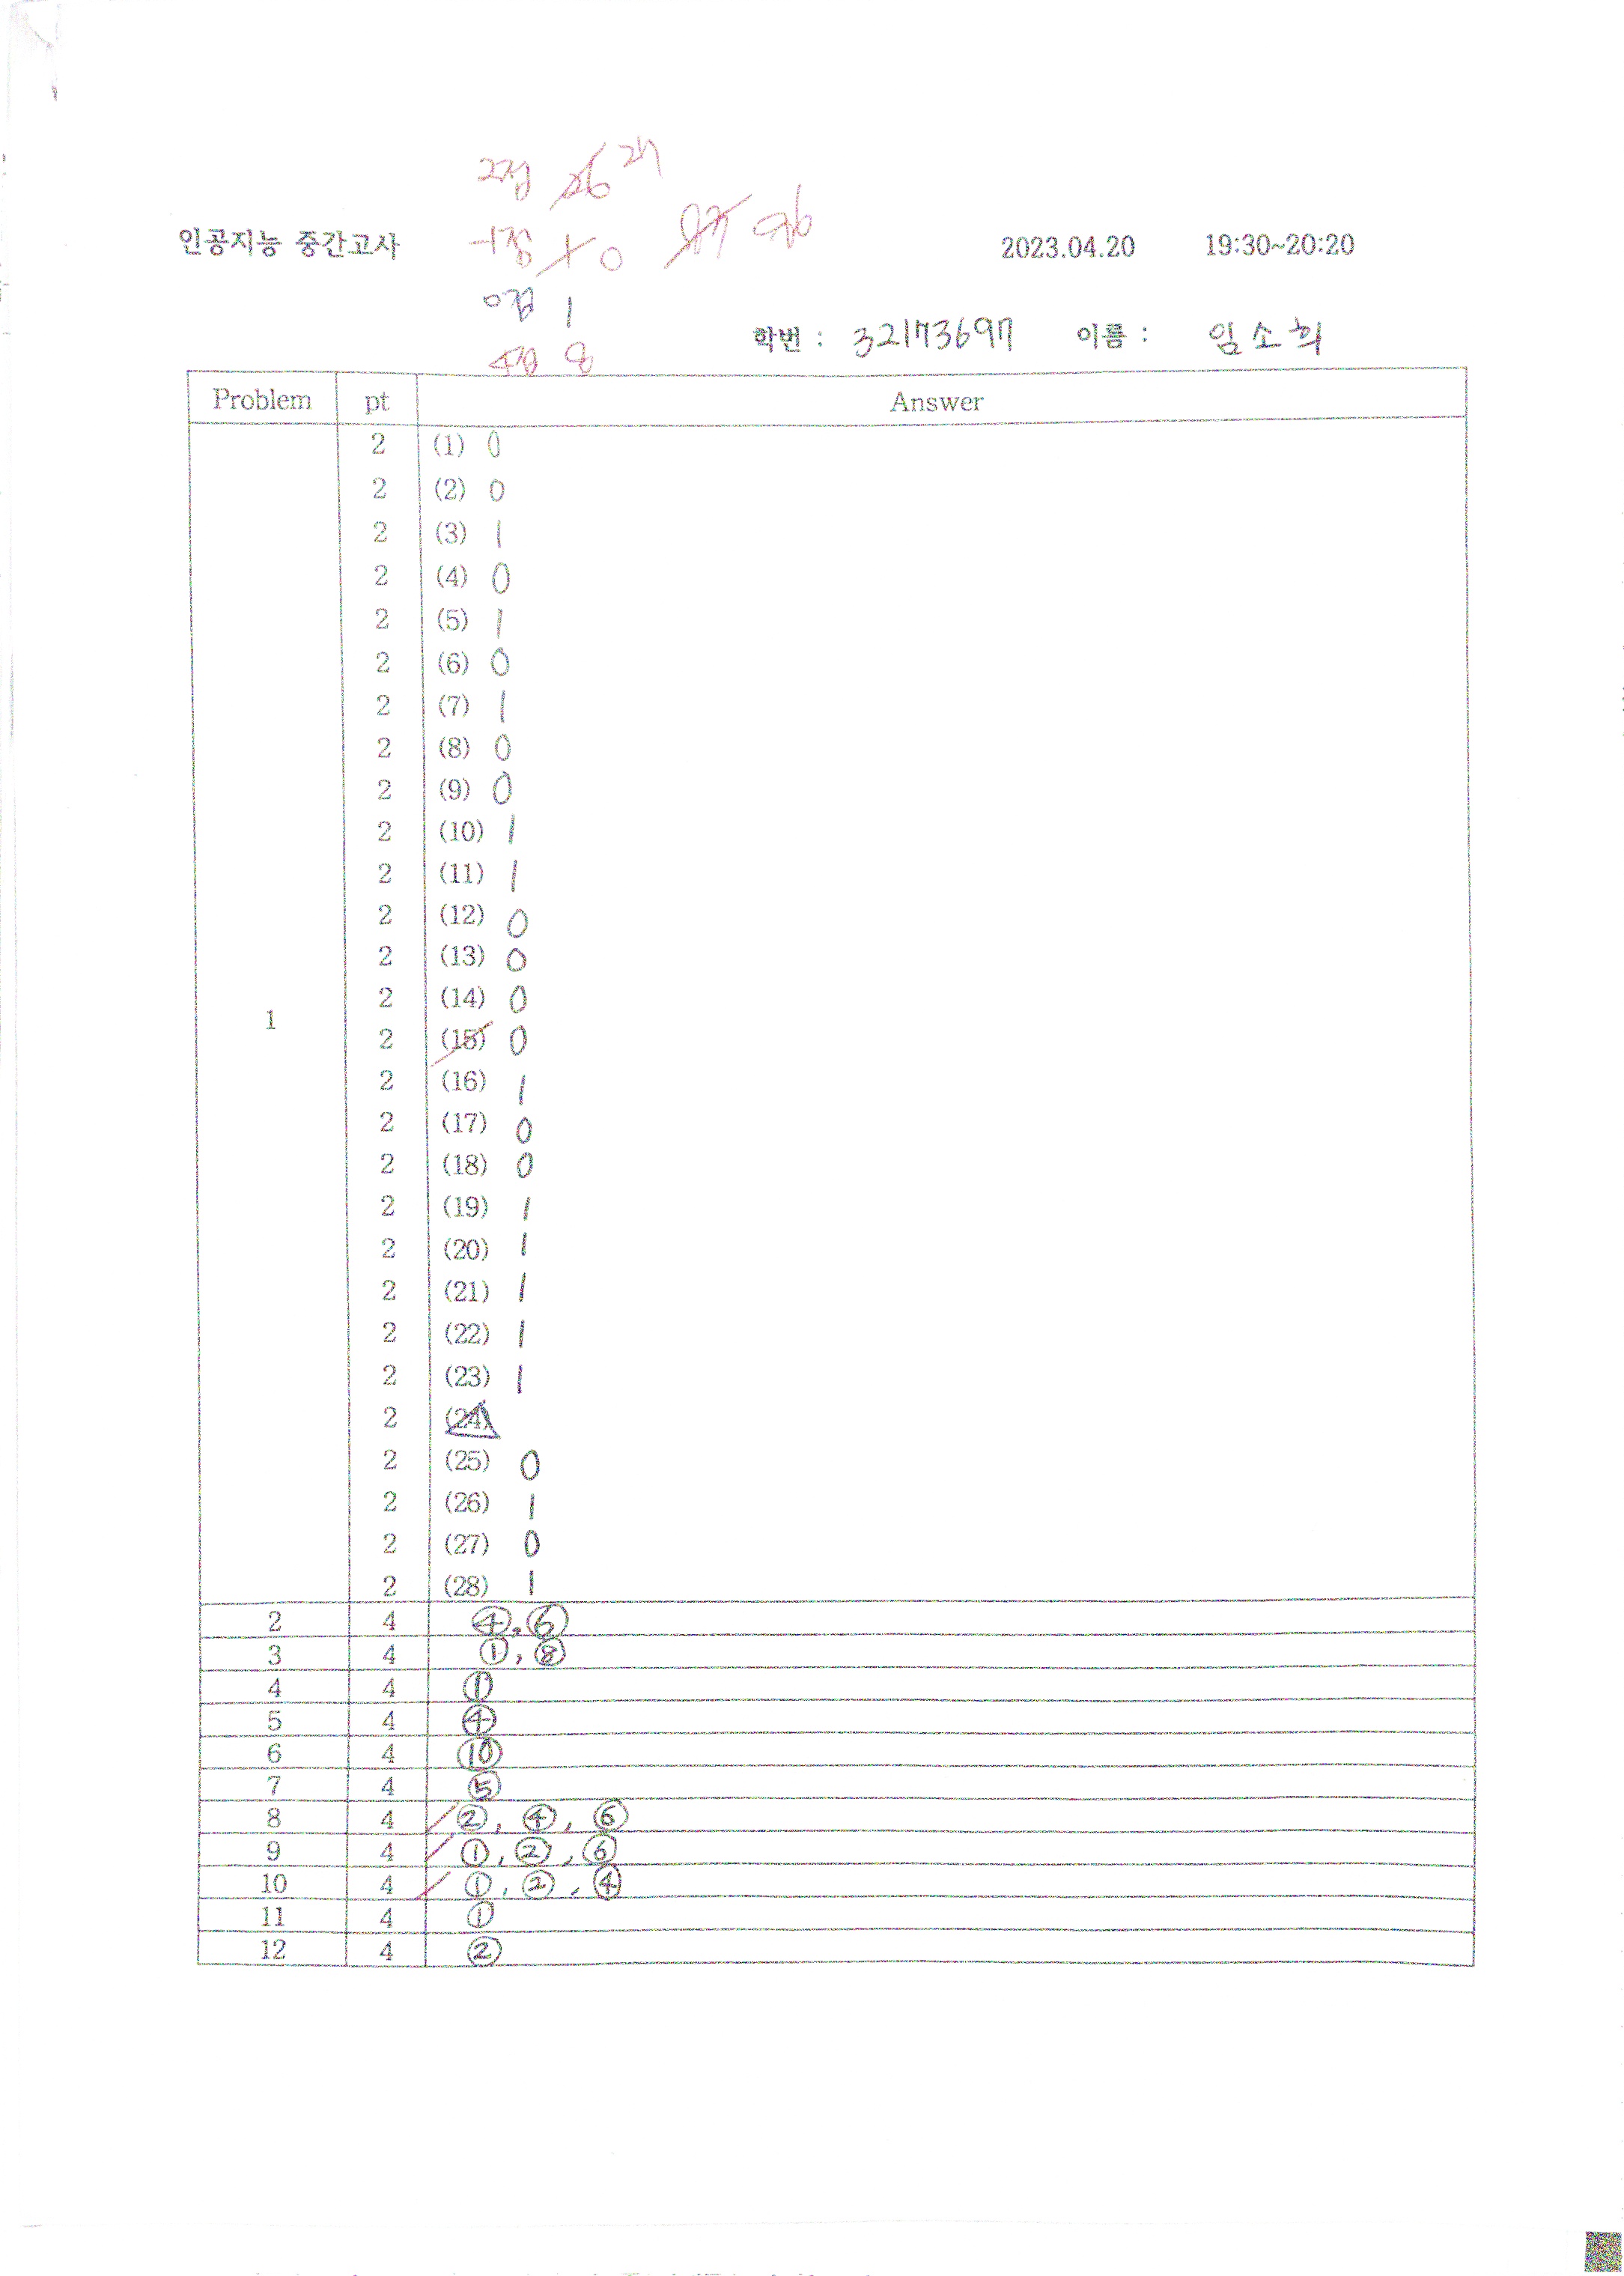 2점 26 27
인공지능 중간고사 -1점 1 0 87 86 2023.04.20 19:30~20:20
0점 1
학번 : 32173697 이름 : 임소희
4점 8
Problem pt Answer
2 (1) 0
2 (2) 0
2 (3) 1
2 (4) 0
2 (5) 1
2 (6) 0
2 (7) 1
2 (8) 0
2 (9) 0
2 (10) 1
2 (11) 1
2 (12) 0
2 (13) 0
2 (14) 0
1 2 (15) 0
2 (16) 1
2 (17) 0
2 (18) 0
2 (19) 1
2 (20) 1
2 (21) 1
2 (22) 1
2 (23) 1
2 (24)
2 (25) 0
2 (26) 1
2 (27) 0
2 (28) 1
2 4 ④, ⑥
3 4 ①, ⑧
4 4 ①
5 4 ④
6 4 ⑩
7 4 ⑤
8 4 ②, ④, ⑥
9 4 ①, ②, ⑥
10 4 ①, ②, ④
11 4 ①
12 4 ②